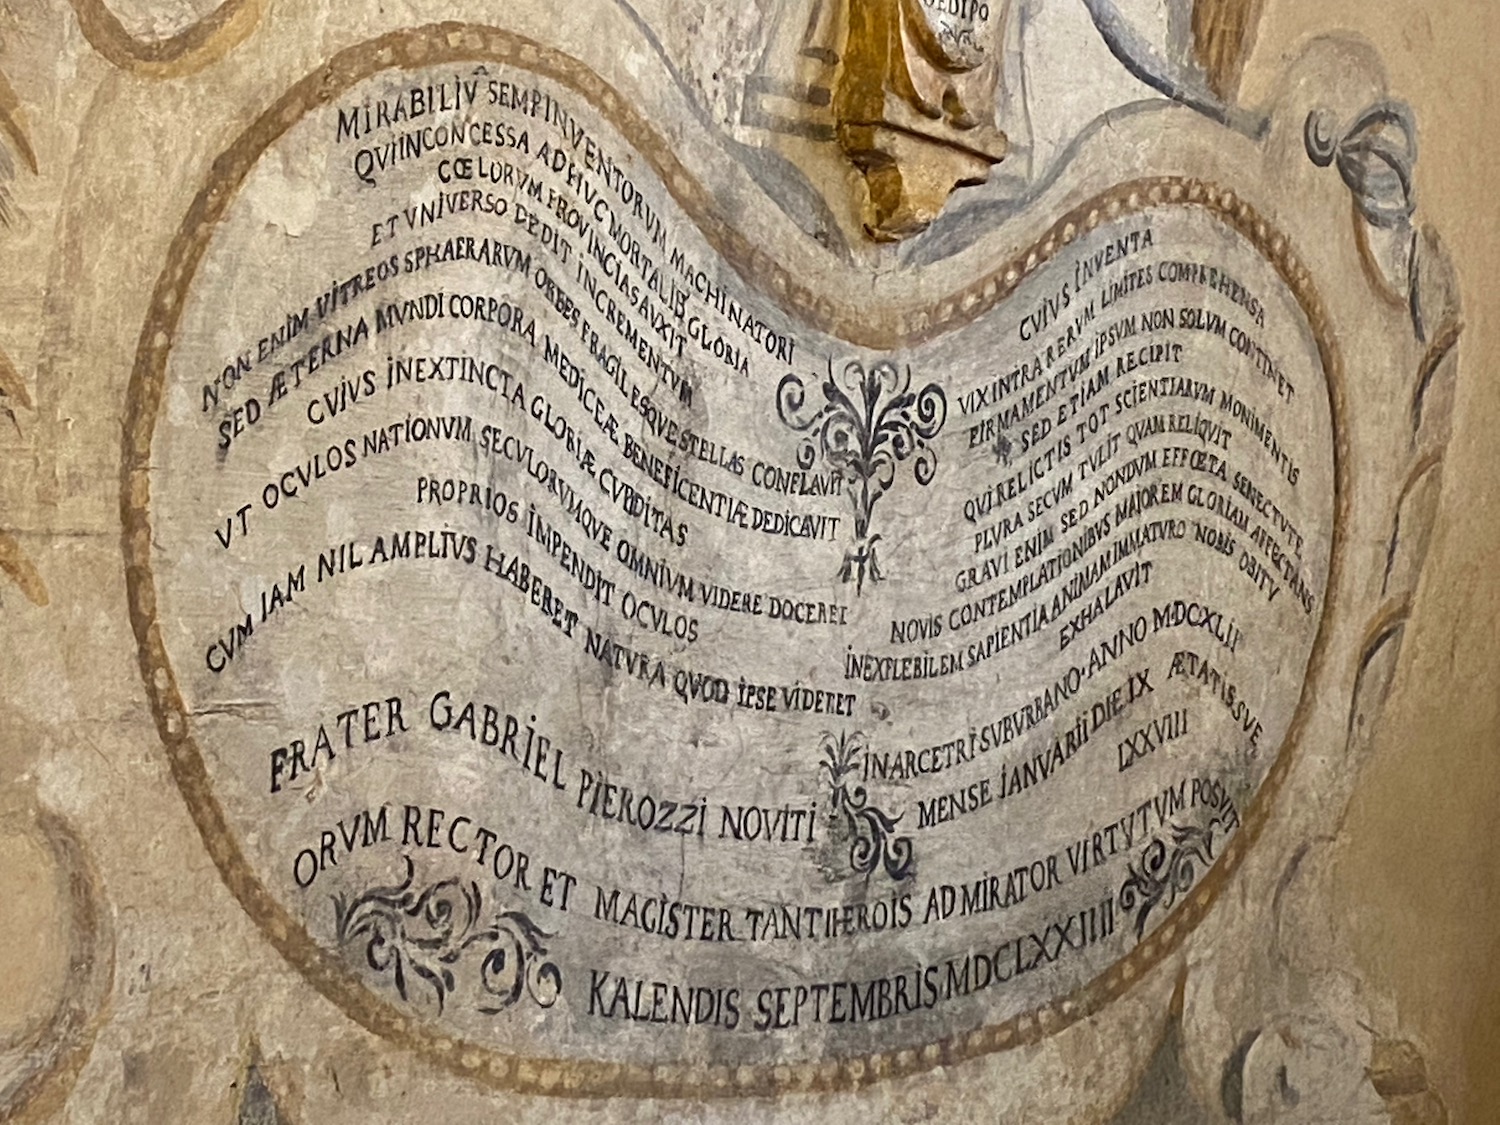 OEDIPO
MIRABILIV̂ SEMP INVENTORUM MACHINATORI
QVI INCONCESSA ADHVC MORTALIB GLORIA
CŒLORVM PROVINCIAS AVXIT
ET VNIVERSO DEDIT INCREMENTVM
NON ENIM VITREOS SPHAERARVM ORBES FRAGILESQVE STELLAS CONFLAVIT
SED ÆTERNA MVNDI CORPORA MEDICEÆ BENEFICENTIÆ DEDICAVIT
CVIVS INEXTINCTA GLORIÆ CVPIDITAS
VT OCVLOS NATIONVM SECVLORVMQVE OMNIVM VIDERE DOCERET
PROPRIOS IMPENDIT OCVLOS
CVM IAM NIL AMPLIVS HABERET NATVRA QVOD IPSE VIDERET
CVIVS INVENTA
VIX INTRA RERVM LIMITES COMPREHENSA
FIRMAMENTVM IPSVM NON SOLVM CONTINET
SED ETIAM RECIPIT
QVI RELICTIS TOT SCIENTIARVM MONIMENTIS
PLVRA SECVM TVLIT QVAM RELIQVIT
GRAVI ENIM SED NONDVM EFFŒTA SENECTVTE
NOVIS CONTEMPLATIONIBVS MAIOREM GLORIAM AFFECTANS
INEXPLEBILEM SAPIENTIA ANIMAM IMMATVRO NOBIS OBITV
EXHALAVIT
IN ARCETRI SVBVRBANO · ANNO MDCXLII
MENSE IANVARII DIE IX ÆTATIS SVE
LXXVIII
FRATER GABRIEL PIEROZZI NOVITI
ORVM RECTOR ET MAGISTER TANTI HEROIS ADMIRATOR VIRTVTVM POSVIT
KALENDIS SEPTEMBRIS MDCLXXIIII